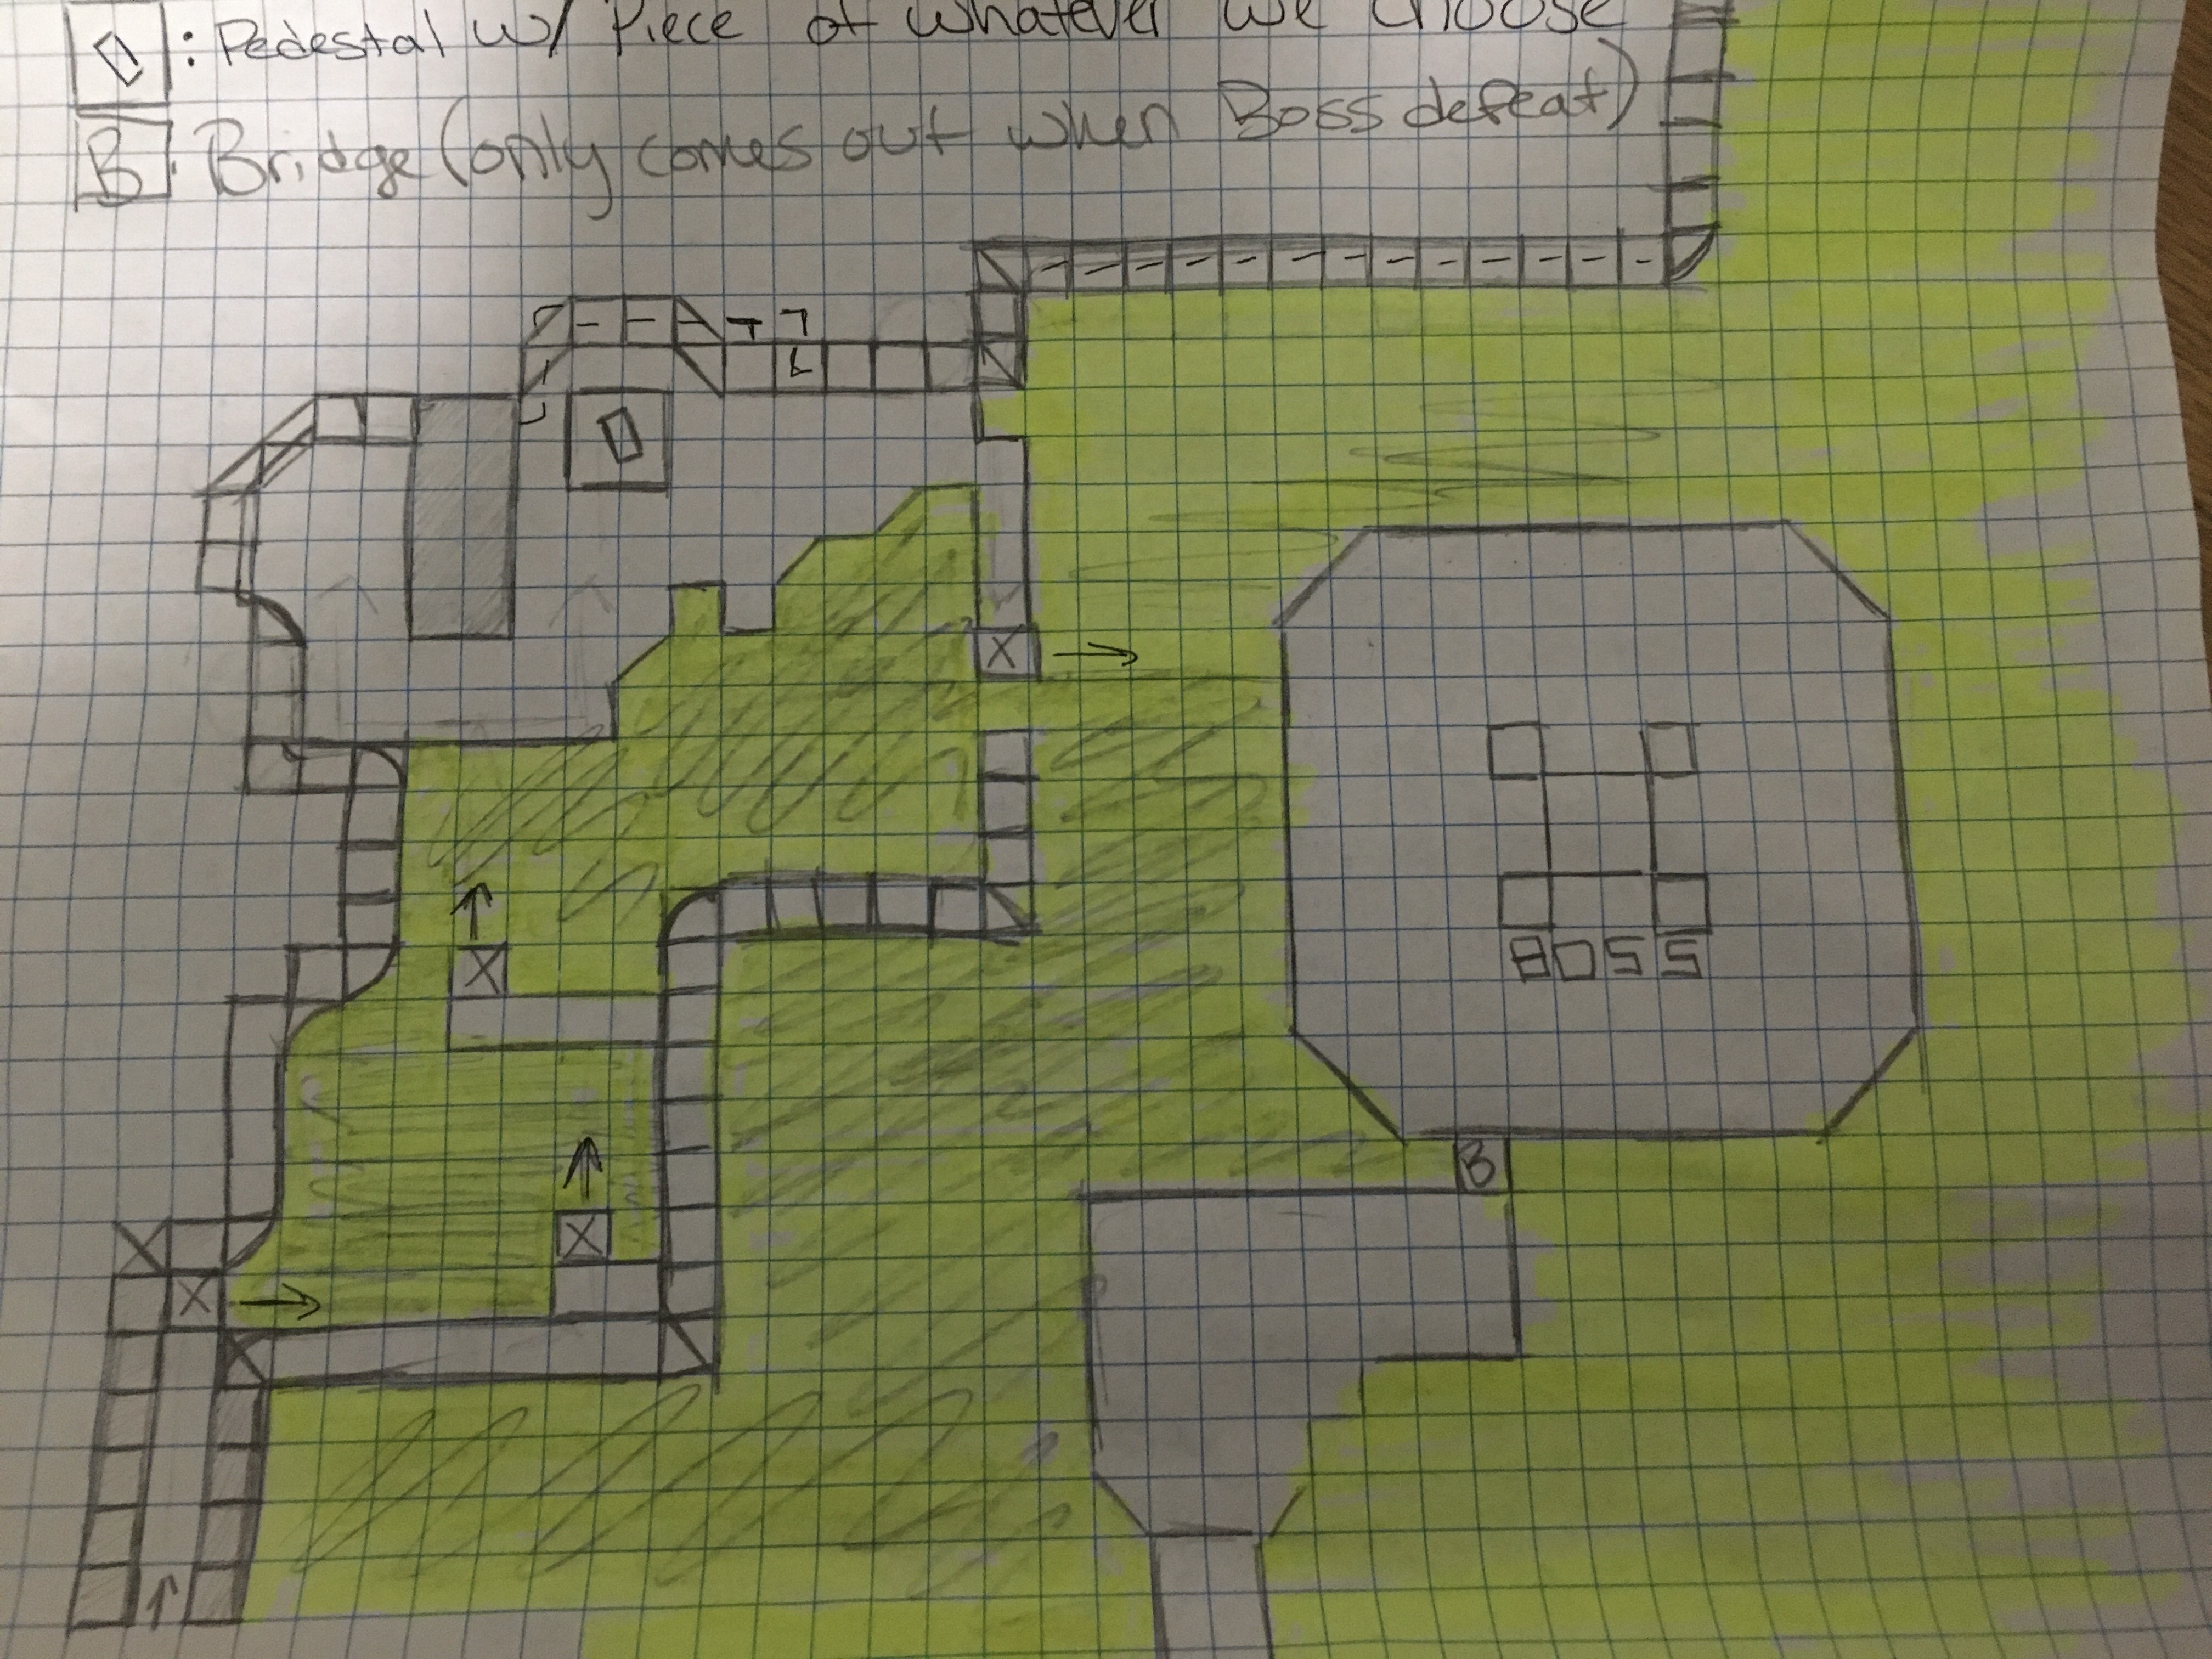 : Pedestal w/ Piece of whatever we choose
B: Bridge (only comes out when Boss defeat)
X
X
BOSS
B
X
X